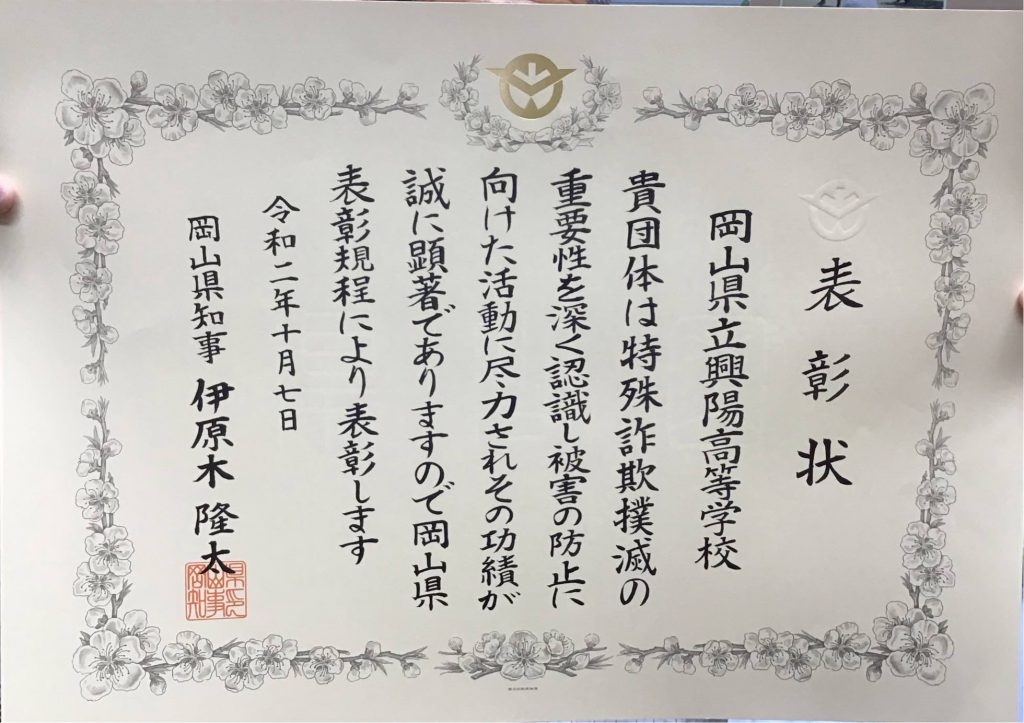 表彰状
岡山県立興陽高等学校
貴団体は特殊詐欺撲滅の
重要性を深く認識し被害の防止に
向けた活動に尽力されその功績が
誠に顕著でありますので岡山県
表彰規程により表彰します
令和二年十月七日
岡山県知事 伊原木 隆太